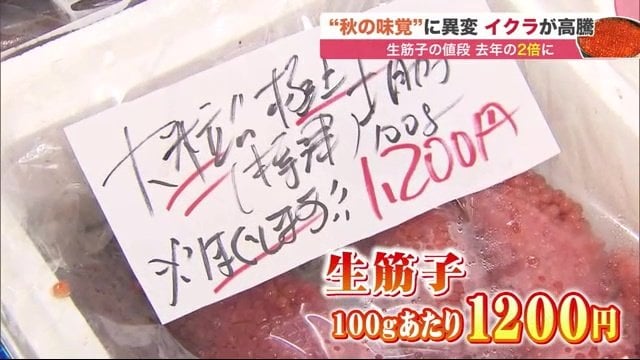 “秋の味覚”に異変 イクラが高騰
生筋子の値段 去年の2倍に
大粒い 極上
(標津) 100g
1,200円
※ほぐしほう!!
生筋子
100gあたり1200円